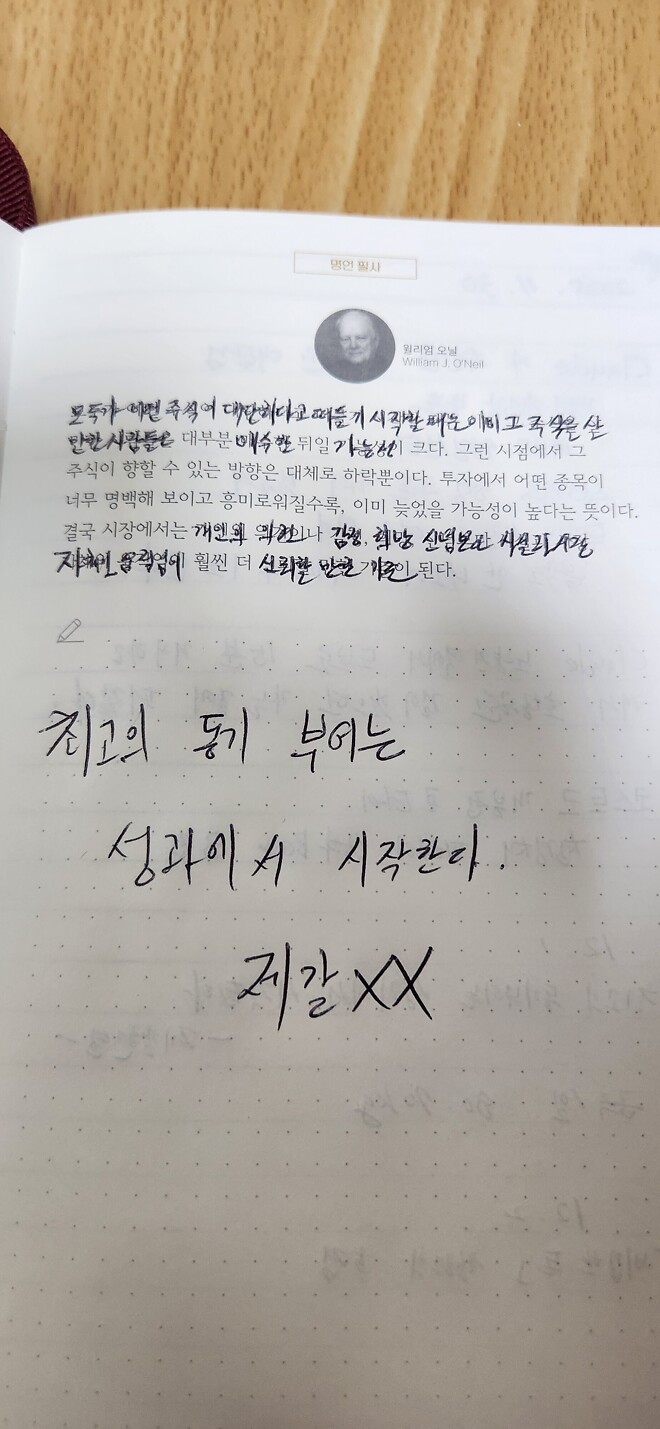 명언 필사
윌리엄 오닐
William J. O'Neil
모두가 어떤 주식이 대단하다고 떠들기 시작할 때는 이미 그 주식을 살
만한 사람들은 대부분 매수한 뒤일 가능성이 크다. 그런 시점에서 그
주식이 향할 수 있는 방향은 대체로 하락뿐이다. 투자에서 어떤 종목이
너무 명백해 보이고 흥미로워질수록, 이미 늦었을 가능성이 높다는 뜻이다.
결국 시장에서는 개인의 의견이나 감정, 희망, 신념보다 사실과 시장
자체의 움직임이 훨씬 더 신뢰할 만한 기준이 된다.
최고의 동기 부여는
성과에서 시작한다.
제갈XX